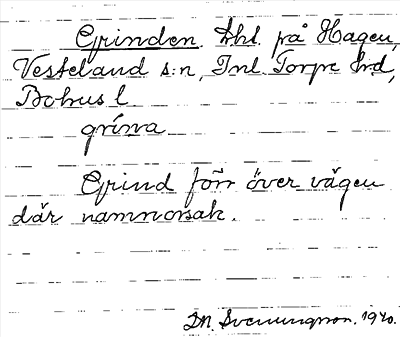 Grinden. Lht. på Hagen,
Vesteland s:n, Inl. Torpe hd,
Bohus l.
grínna
Grind förr över vägen
där namnorsak.
Svenningson. 1940.